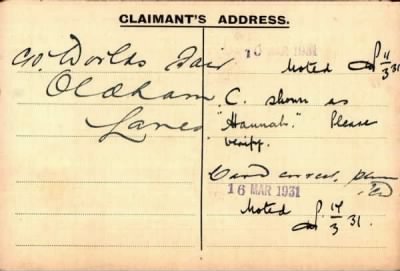 CLAIMANT'S ADDRESS.
c/o. Worlds Fair
Oldham
Lancs
10 MAR 1931
Noted 11/3 31
C. shown as
"Hannah." Please
verify.
Card correct.
16 MAR 1931
Noted 17/3 31.